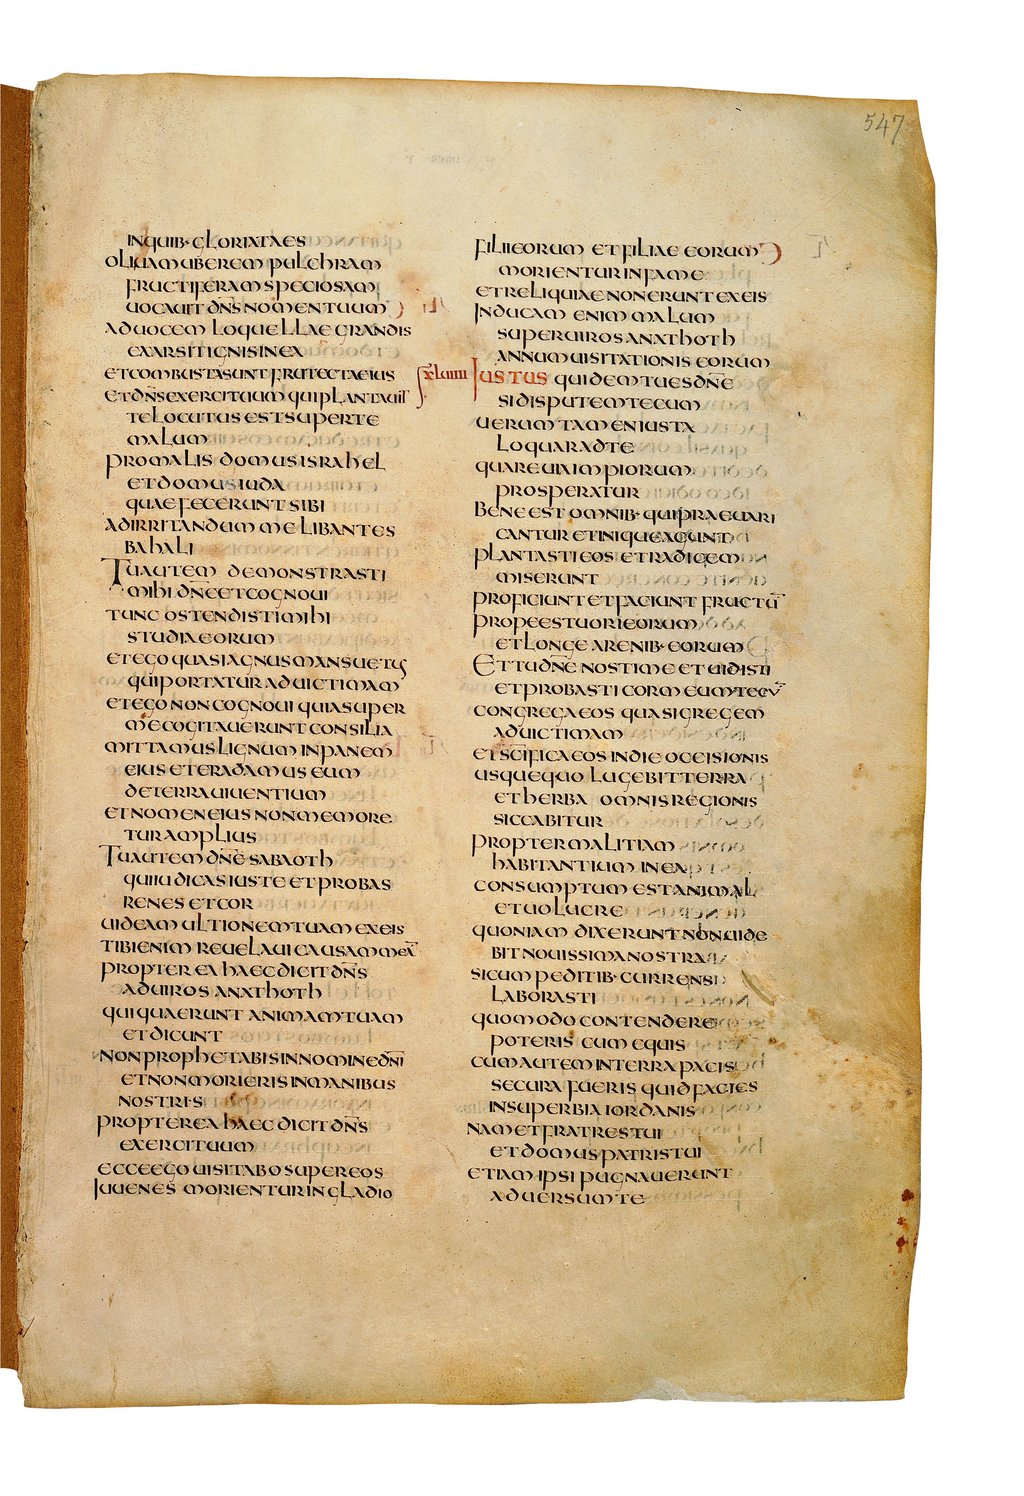 547
INQUIB· GLORIATAES
OLIUAM UBEREM PULCHRAM
FRUCTIFERAM SPECIOSAM
UOCAUIT DN̄S NOMEN TUUM
AD UOCEM LOQUELLAE GRANDIS
EXARSIT IGNIS IN EA
ET COMBUSTA SUNT FRUTECTA EIUS
ET DN̄S EXERCITUUM QUI PLANTAUIT
TE LOCUTUS EST SUPER TE
MALUM
PRO MALIS DOMUS ISRAHEL
ET DOMUS IUDA
QUAE FECERUNT SIBI
AD IRRITANDUM ME LIBANTES
BAHALI
TU AUTEM DEMONSTRASTI
MIHI DN̄E ET COGNOUI
TUNC OSTENDISTI MIHI
STUDIA EORUM
ET EGO QUASI AGNUS MANSUETUS
QUI PORTATUR AD UICTIMAM
ET EGO NON COGNOUI QUIA SUPER
ME COGITAUERUNT CONSILIA
MITTAMUS LIGNUM IN PANEM
EIUS ET ERADAMUS EUM
DE TERRA UIUENTIUM
ET NOMEN EIUS NON MEMORE
TUR AMPLIUS
TU AUTEM DN̄E SABAOTH
QUI IUDICAS IUSTE ET PROBAS
RENES ET COR
UIDEAM ULTIONEM TUAM EX EIS
TIBI ENIM REUELAUI CAUSAM MEĀ
PROPTEREA HAEC DICIT DN̄S
AD UIROS ANATHOTH
QUI QUAERUNT ANIMAM TUAM
ET DICUNT
NON PROPHETABIS IN NOMINE DN̄I
ET NON MORIERIS IN MANIBUS
NOSTRIS
PROPTEREA HAEC DICIT DN̄S
EXERCITUUM
ECCE EGO UISITABO SUPER EOS
IUUENES MORIENTUR IN GLADIO
FILII EORUM ET FILIAE EORUM
MORIENTUR IN FAME
ET RELIQUIAE NON ERUNT EX EIS
INDUCAM ENIM MALUM
SUPER UIROS ANATHOTH
ANNUM UISITATIONIS EORUM
XLIIII IUSTUS QUIDEM TU ES DN̄E
SI DISPUTEM TECUM
UERUM TAMEN IUSTA
LOQUAR AD TE
QUARE UIA IMPIORUM
PROSPERATUR
BENE EST OMNIB· QUI PRAEUARI
CANTUR ET INIQUE AGUNT
PLANTASTI EOS ET RADICEM
MISERUNT
PROFICIUNT ET FACIUNT FRUCTŪ
PROPE ES TU ORI EORUM
ET LONGE A RENIB· EORUM
ET TU DN̄E NOSTI ME ET UIDISTI
ET PROBASTI COR MEUM TECŪ
CONGREGA EOS QUASI GREGEM
AD UICTIMAM
ET SC̄IFICA EOS IN DIE OCCISIONIS
USQUEQUO LUGEBIT TERRA
ET HERBA OMNIS REGIONIS
SICCABITUR
PROPTER MALITIAM
HABITANTIUM IN EA
CONSUMPTUM EST ANIMAL
ET UOLUCRE
QUONIAM DIXERUNT NON UIDE
BIT NOUISSIMA NOSTRA
SI CUM PEDITIB· CURRENS
LABORASTI
QUOMODO CONTENDERE
POTERIS CUM EQUIS
CUM AUTEM IN TERRA PACIS
SECURA FUERIS QUID FACIES
IN SUPERBIA IORDANIS
NAM ET FRATRES TUI
ET DOMUS PATRIS TUI
ETIAM IPSI PUGNAUERUNT
ADUERSUM TE